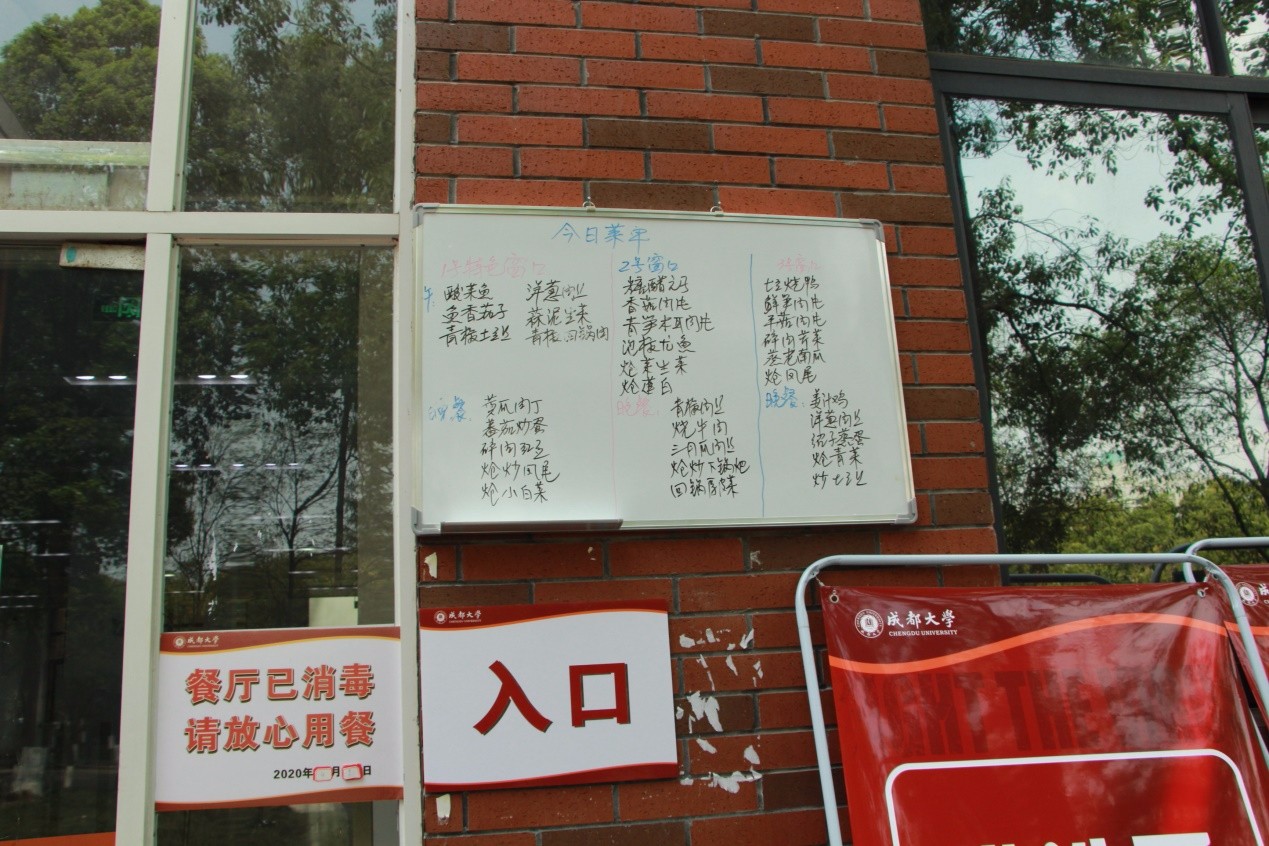 今日菜单
1号特色窗口
午
酸菜鱼 洋葱肉丝
鱼香茄子 蒜泥生菜
青椒土豆丝 青椒回锅肉
晚餐
黄瓜肉丁
番茄炒蛋
碎肉豇豆
炝炒凤尾
炝小白菜
2号窗口
香菇肉片
青笋木耳肉片
泡椒尤鱼
炝莲白
晚餐
青椒肉丝
烧牛肉
二月瓜肉丝
回锅厚皮菜
土豆烧鸭
鲜笋肉片
平菇肉片
碎肉芹菜
蒸老南瓜
炝凤尾
晚餐
姜汁鸡
洋葱肉丝
绍子蒸蛋
炝青菜
炒土豆丝
成都大学
餐厅已消毒
请放心用餐
2020年 月 日
成都大学
入口
成都大学
CHENGDU UNIVERSITY